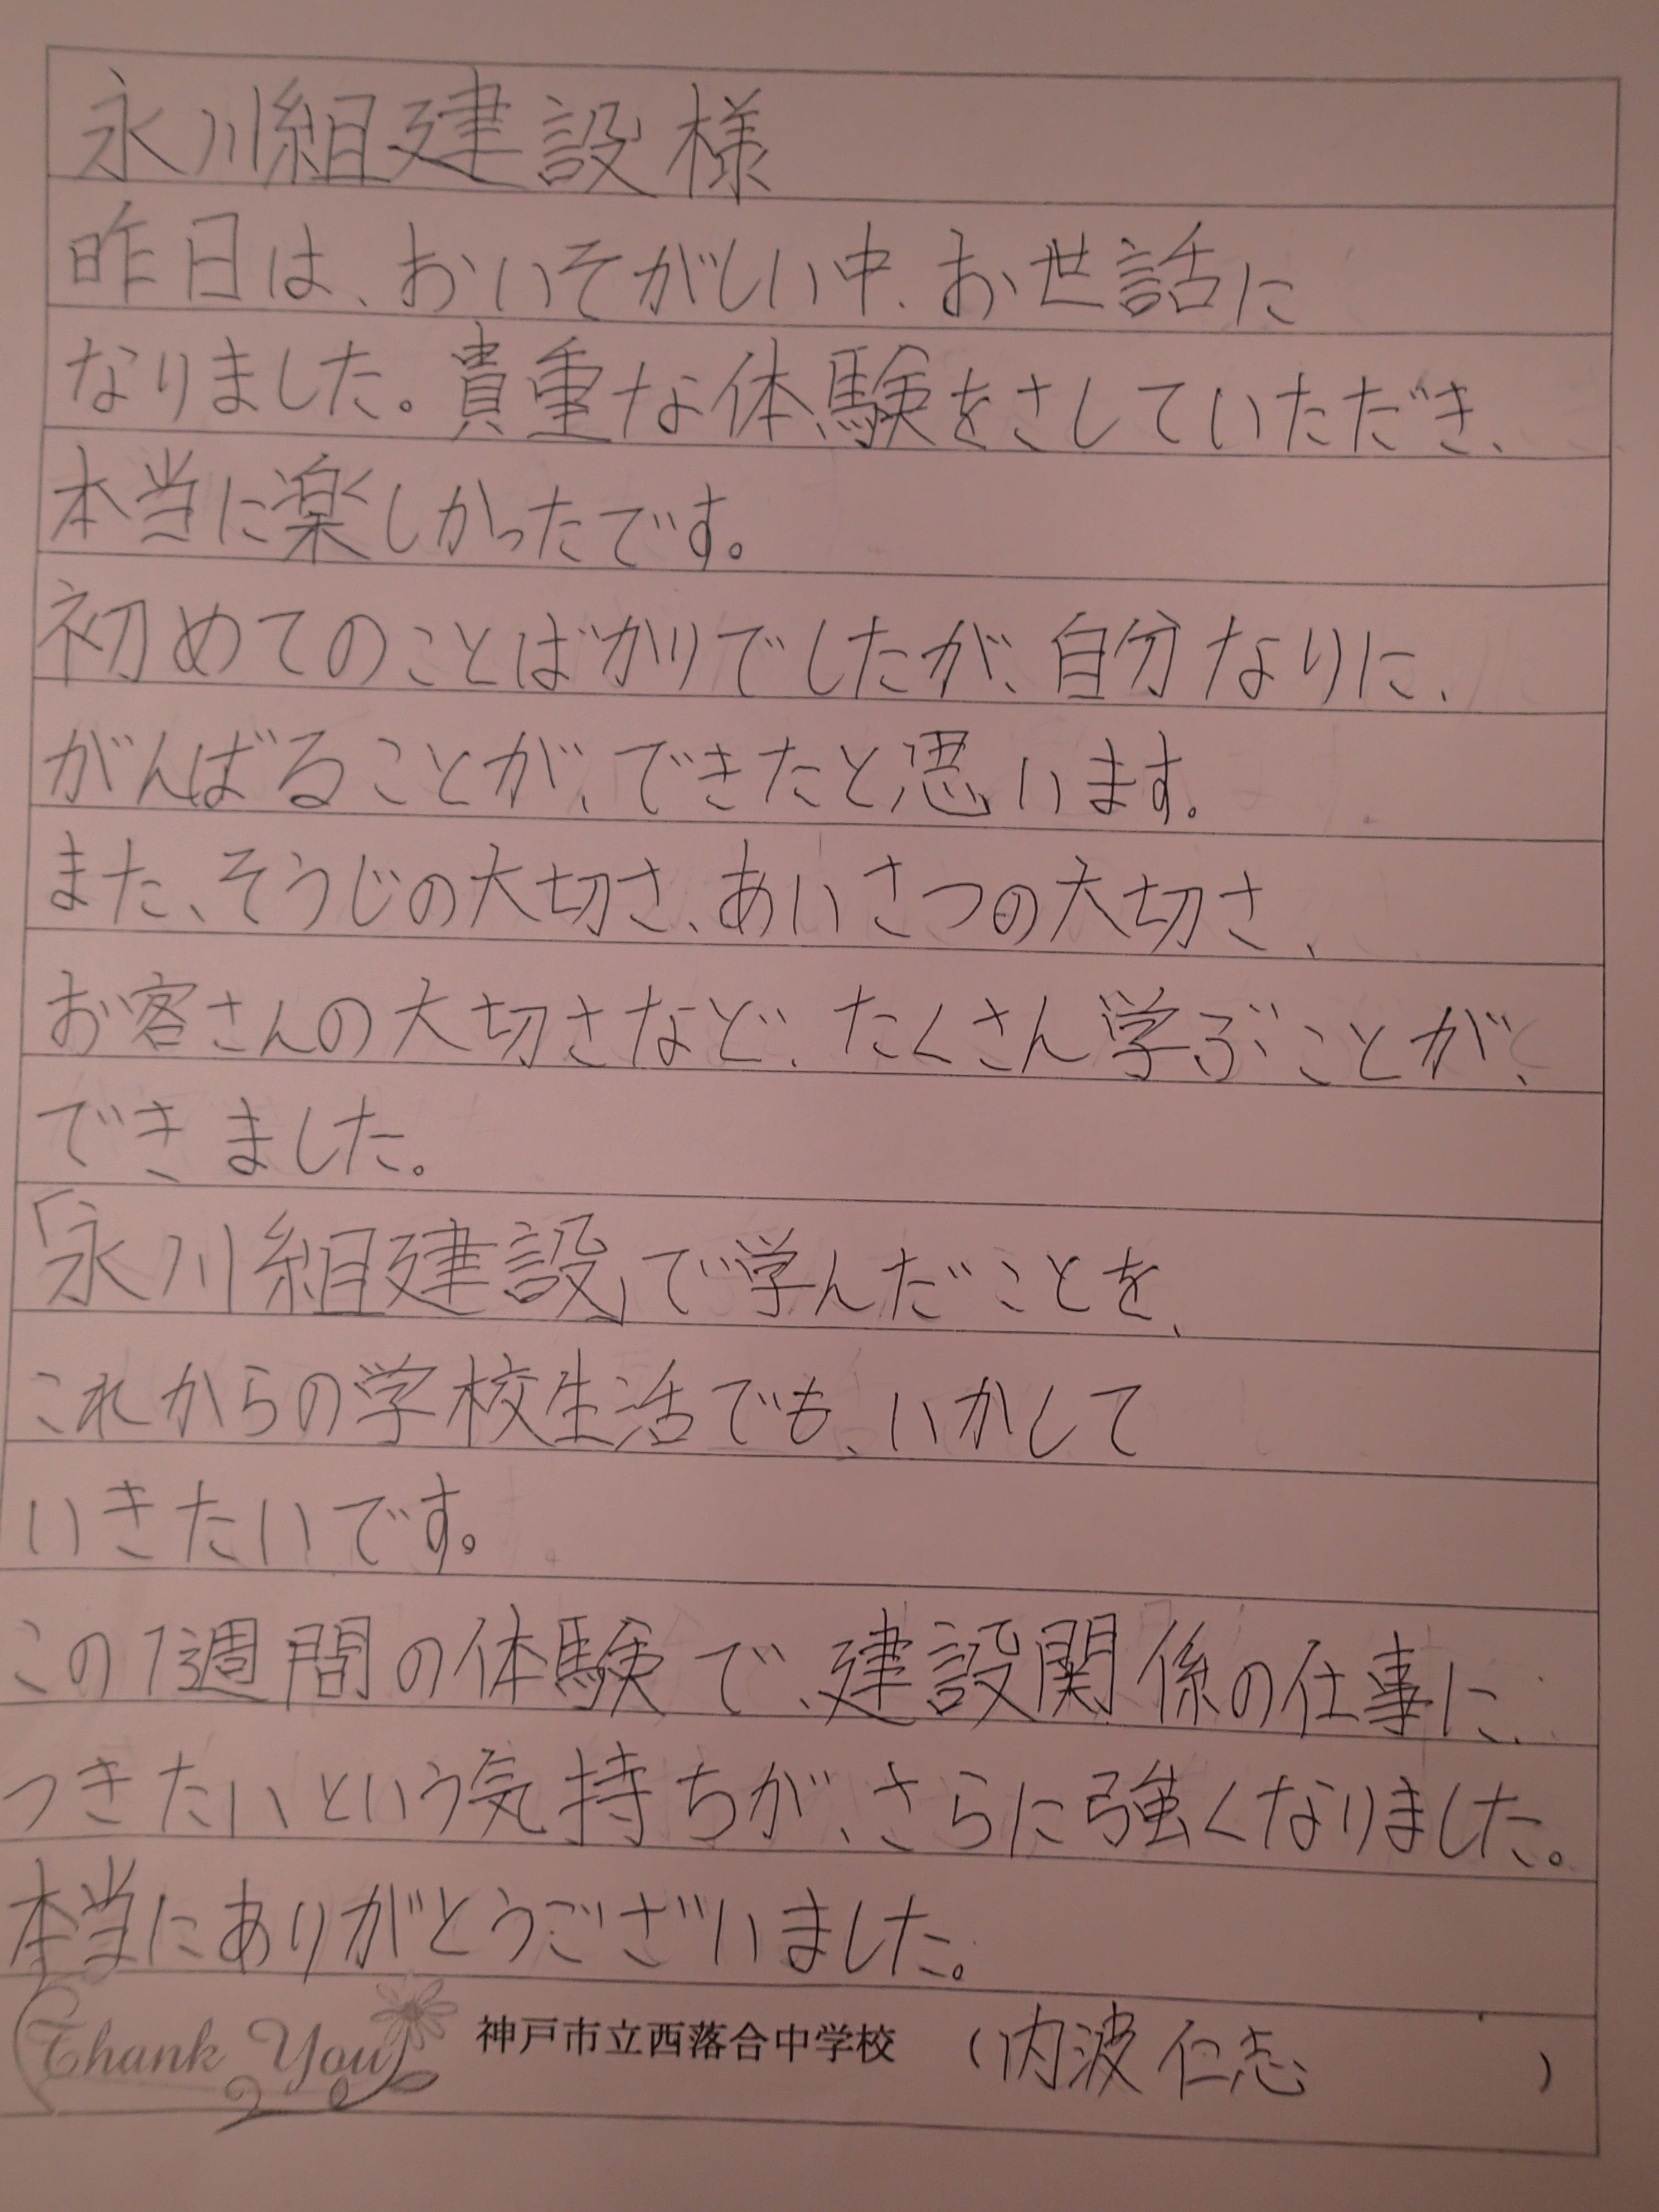 永川組建設様
昨日は、おいそがしい中、お世話に
なりました。貴重な体験をさしていただき、
本当に楽しかったです。
初めてのことばかりでしたが、自分なりに、
がんばることが、できたと思います。
また、そうじの大切さ、あいさつの大切さ、
お客さんの大切さなど、たくさん学ぶことが、
できました。
「永川組建設」で学んだことを、
これからの学校生活でも、いかして
いきたいです。
この1週間の体験で、建設関係の仕事に、
つきたいという気持ちが、さらに強くなりました。
本当にありがとうございました。
Thank You 神戸市立西落合中学校 (内波仁志)